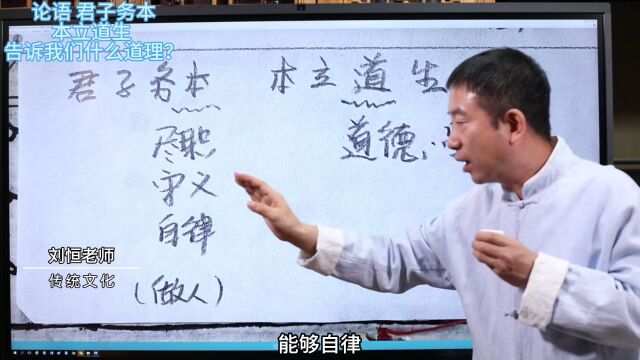 论语 君子务本
本立道生
告诉我们什么道理?
君子务本 本立道生
尽职 道德
守义
自律
(做人)
刘恒老师
传统文化
能够自律